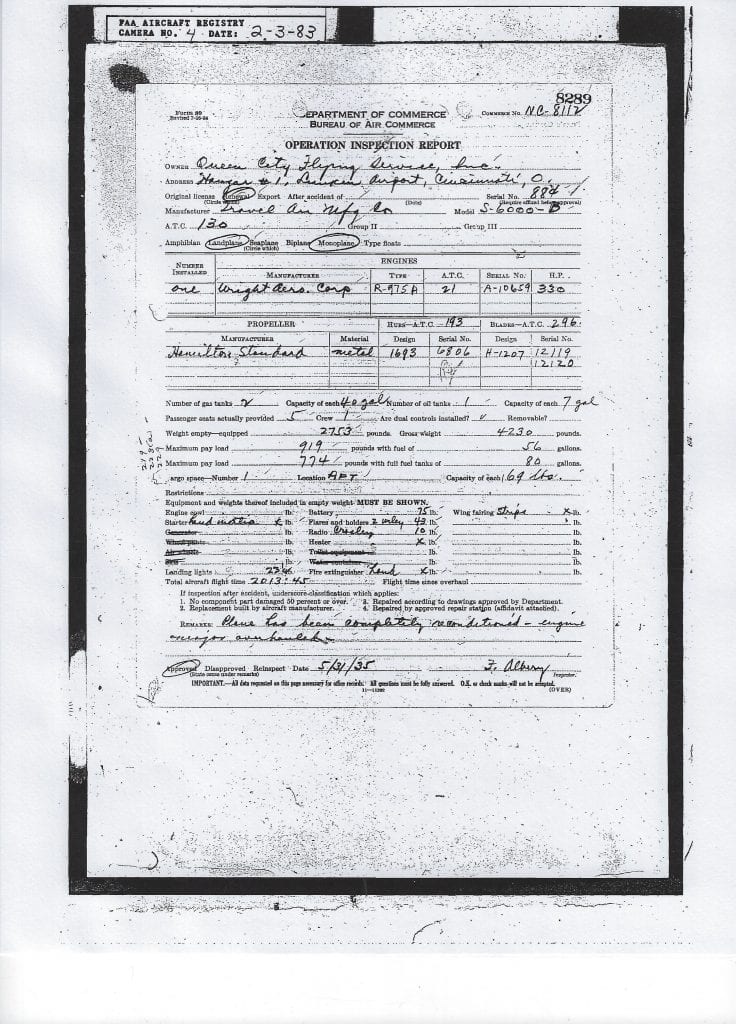 FAA AIRCRAFT REGISTRY
CAMERA NO. 4 DATE: 2-3-83
8289
Form 89
Revised 7-26-34
DEPARTMENT OF COMMERCE
BUREAU OF AIR COMMERCE
COMMERCE No. NC-8112
OPERATION INSPECTION REPORT
OWNER Queen City Flying Service, Inc.
ADDRESS Hangar #1, Lunken Airport, Cincinnati, O.
Original license Renewal Export After accident of Serial No. 884
(Circle which) (Date) (Require affixed before approval)
Manufacturer Travel Air Mfg Co Model S-6000-B
A.T.C. 130 Group II Group III
Amphibian Landplane Seaplane Biplane Monoplane Type floats
(Circle which)
NUMBER INSTALLED ENGINES
MANUFACTURER TYPE A.T.C. SERIAL No. H.P.
one Wright Aero. Corp R-975A 21 A-10659 330
PROPELLER HUBS—A.T.C. 193 BLADES—A.T.C. 296
MANUFACTURER Material Design Serial No. Design Serial No.
Hamilton Standard metal 1693 6806 H-1207 12119
12120
Number of gas tanks 2 Capacity of each 40 gal Number of oil tanks 1 Capacity of each 7 gal
Passenger seats actually provided 5 Crew 1 Are dual controls installed? Removable?
Weight empty—equipped 2753 pounds. Gross weight 4230 pounds.
Maximum pay load 919 pounds with fuel of 56 gallons.
Maximum pay load 774 pounds with full fuel tanks of 80 gallons.
argo space—Number 1 Location AFT Capacity of each 69 lbs.
Restrictions
Equipment and weights thereof included in empty weight MUST BE SHOWN.
Engine cowl lb. Battery 75 lb. Wing fairing strips x lb.
Starter hand inertia x lb. Flares and holders 43 lb. lb.
Generator lb. Radio Crosley 10 lb. lb.
Wheel pants lb. Heater x lb. lb.
Air wheels lb. Toilet equipment lb. lb.
Skis lb. Water container lb. lb.
Landing lights lb. Fire extinguisher hand x lb. lb.
Total aircraft flight time 2013:45 Flight time since overhaul
If inspection after accident, underscore classification which applies:
1. No component part damaged 50 percent or over. 3. Repaired according to drawings approved by Department.
2. Replacement built by aircraft manufacturer. 4. Repaired by approved repair station (affidavit attached).
REMARKS: Plane has been completely reconditioned - engine
major overhauled.
Approved Disapproved Reinspect Date 5/31/35 F. Inspector.
(State cause under remarks)
IMPORTANT.—All data requested on this page necessary for office records. All questions must be fully answered. O.K. or check marks will not be accepted.
(OVER)